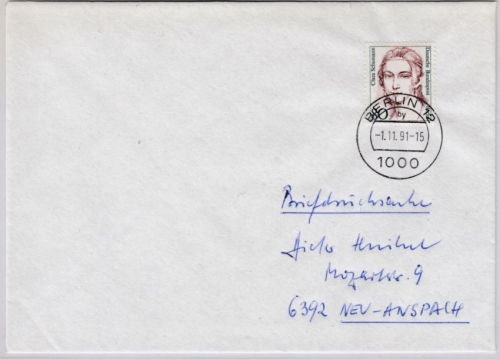 Clara Schumann
Deutsche Bundespost
BERLIN 12
by
-1.11.91-15
1000
Briefdrucksache
Mozartstr. 9
6392 NEU-ANSPACH